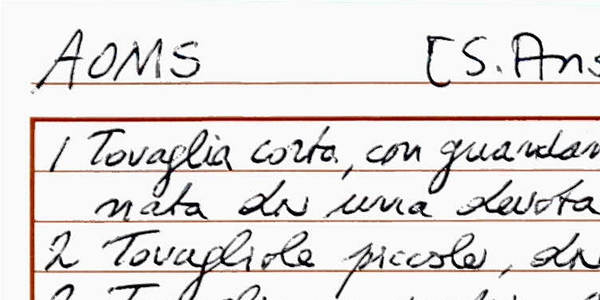 AOMS [S. Ans
1 Tovaglia corta, con guardan
nata di una devota
2 Tovagliole piccole, di